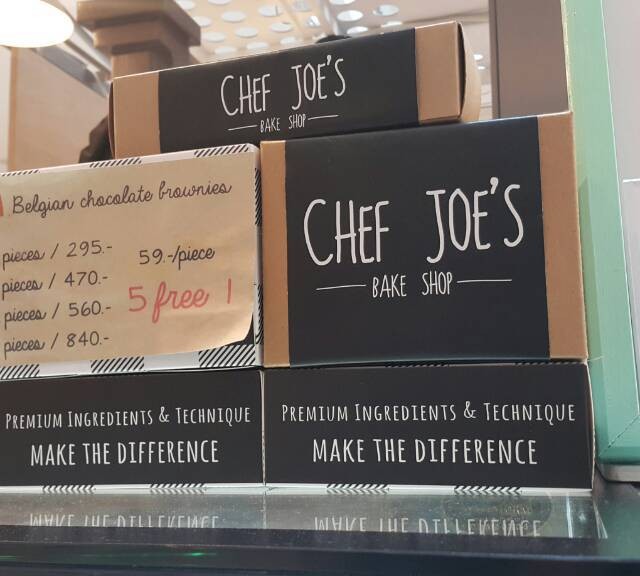 CHEF JOE'S
BAKE SHOP
Belgian chocolate brownies
pieces / 295.-
59.-/piece
pieces / 470.-
pieces / 560.-
5 free !
pieces / 840.-
CHEF JOE'S
BAKE SHOP
PREMIUM INGREDIENTS & TECHNIQUE
MAKE THE DIFFERENCE
PREMIUM INGREDIENTS & TECHNIQUE
MAKE THE DIFFERENCE